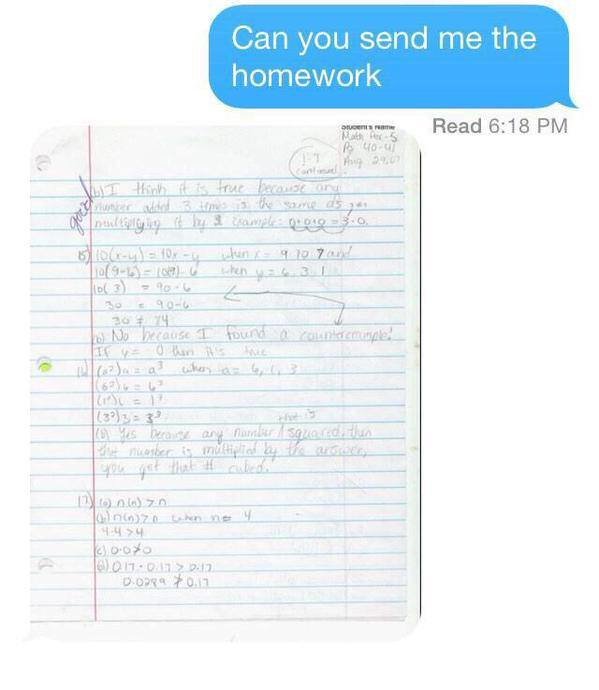 Can you send me the
homework
Read 6:18 PM
Student's Name
Math Per-5
Pg 40-41
1-7
Aug 29,
continued
good!
b) I think it is true because any
number added 3 times is the same as
multiplying it by example: 0+0+0=3·0.
15) 10(x-y) = 10x-y when x = 9 10 7 and
10(9-6)= 10(9)-6 when y = 6, 3, 1
10( 3) = 90-6
30 = 90-6
30 ≠ 84
b) No because I found a counterexample!
If y = 0 then it's true
16) (a²)a = a³ when a= 6, 1, 3
(6²)6 = 6³
(1²)1 = 1³
(3²)3 = 3³
that is
(b) Yes because any number squared, then
that number is multiplied by the answer,
you get that # cubed.
17) (a) n(n) > n
(b) n(n)>n when n= 4
4·4 >4
(c) 0·0≯0
(d) 0.17·0.17 > 0.17
0.0289 ≯ 0.17